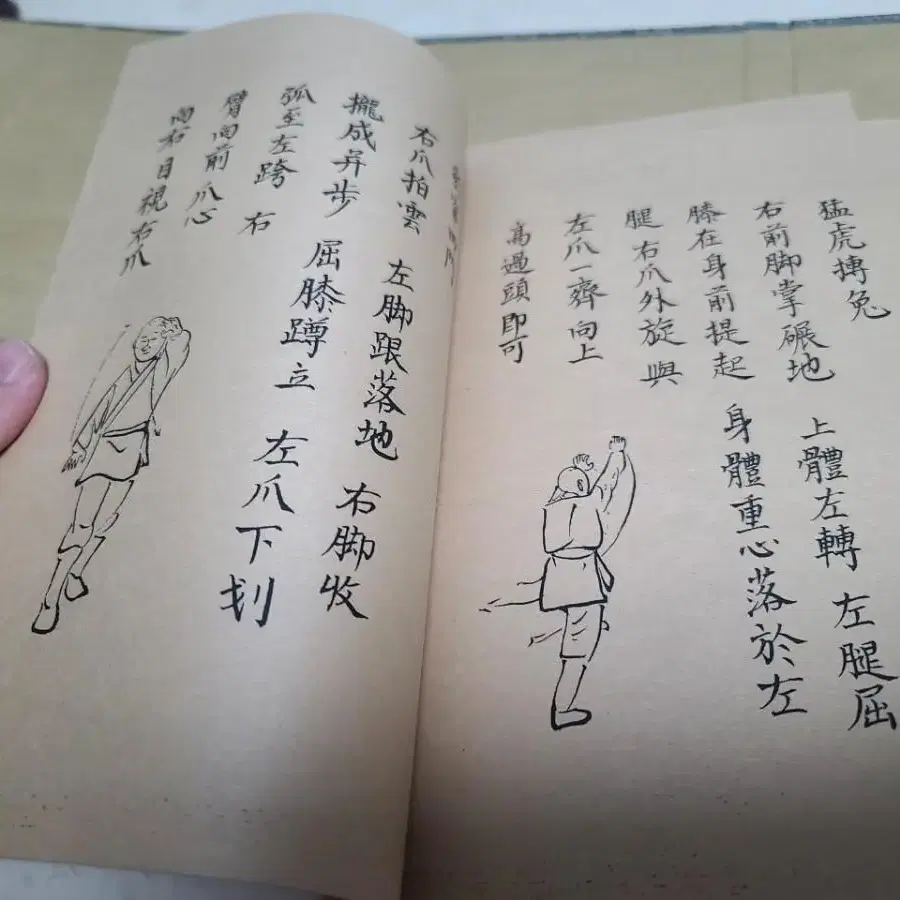 猛虎搏兔
右前脚掌碾地 上體左轉 左腿屈
膝在身前提起 身體重心落於左
腿 右爪外旋 與
左爪一齊向上
高過頭即可
右爪拍雲 左脚跟落地 右脚收
攏成并步 屈膝蹲立 左爪下划
弧至左跨 右
臂向前 爪心
向右 目視右爪